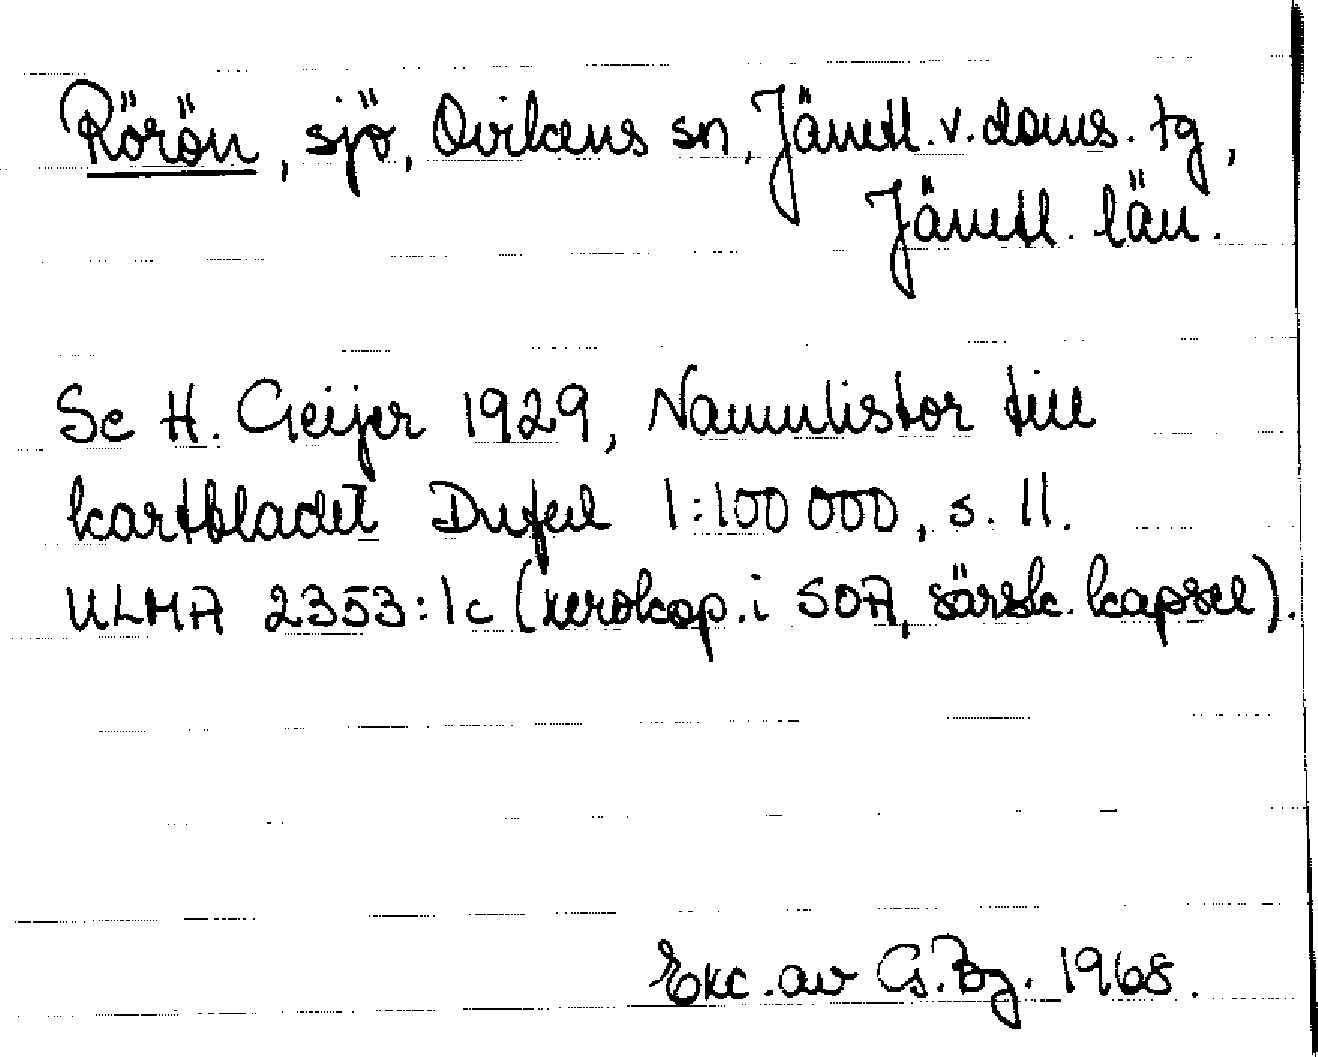 Rörön, sjö, Ovikens sn, Jämtl. v. doms. tg,
Jämtl. län.
Se H. Geijer 1929, Namnlistor till
kartbladet Dufed 1:100 000, s. 11.
ULMA 2353:1c (xerokop. i SOA, särsk. kapsel).
Exc. av G. Bg. 1968.